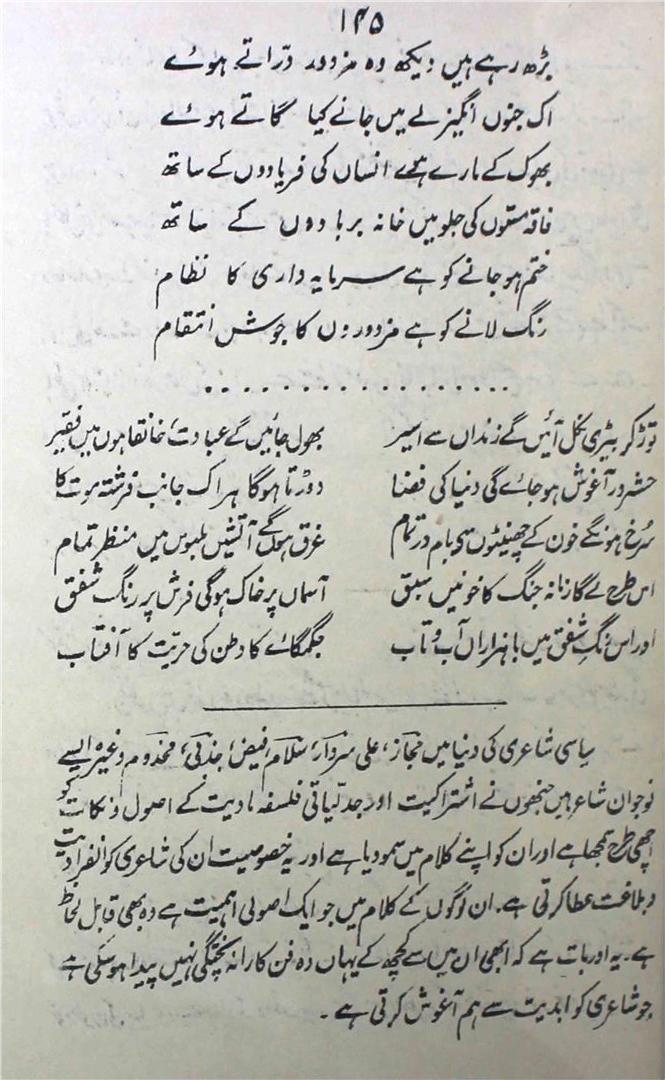 ۱۴۵
بڑھ رہے ہیں دیکھ وہ مزدور درّاتے ہوئے
اک جنوں انگیز لے میں جانے کیا گاتے ہوئے
بھوک کے مارے ہوئے انساں کی فریادوں کے ساتھ
فاقہ مستوں کی جلو میں خانہ بربادوں کے ساتھ
ختم ہو جانے کو ہے سرمایہ داری کا نظام
رنگ لانے کو ہے مزدوروں کا جوشِ انتقام
. . . . . . . . . . . . . . . . .
توڑ کر بیڑی نکل آئیں گے زنداں سے اسیر بھول جائیں گے عبادت، خانقاہوں میں فقیر
حشر در آغوش ہو جائے گی دنیا کی فضا دوڑتا ہوگا ہر اک جانب فرشتہ موت کا
سُرخ ہونگے خون کے چھینٹوں سے بام و در تمام غرق ہوں گے آتشیں ملبوس میں منظر تمام
اس طرح لے گا زمانہ جنگ کا خونیں سبق آسماں پر خاک ہوگی فرش پر رنگِ شفق
اور اس رنگِ شفق میں با ہزاراں آب و تاب جگمگائے گا وطن کی حریّت کا آفتاب
سیاسی شاعری کی دنیا میں مجاز، علی سردار، سلام، فیض، جذبی، مخدوم وغیرہ ایسے
نوجوان شاعر ہیں جنھوں نے اشتراکیت اور جدلیاتی فلسفہ مادیت کے اصول و نکات کو
اچھی طرح سمجھا ہے اور ان کو اپنے کلام میں سمو دیا ہے اور یہ خصوصیت ان کی شاعری کو انفرادیت
و بلاغت عطا کرتی ہے۔ ان لوگوں کے کلام میں جو ایک اصولی اہمیت ہے وہ بھی قابل لحاظ
ہے۔ یہ اور بات ہے کہ ابھی ان میں سے کچھ کے یہاں وہ فن کارانہ پختگی نہیں پیدا ہو سکی ہے
جو شاعری کو ابدیت سے ہم آغوش کرتی ہے۔